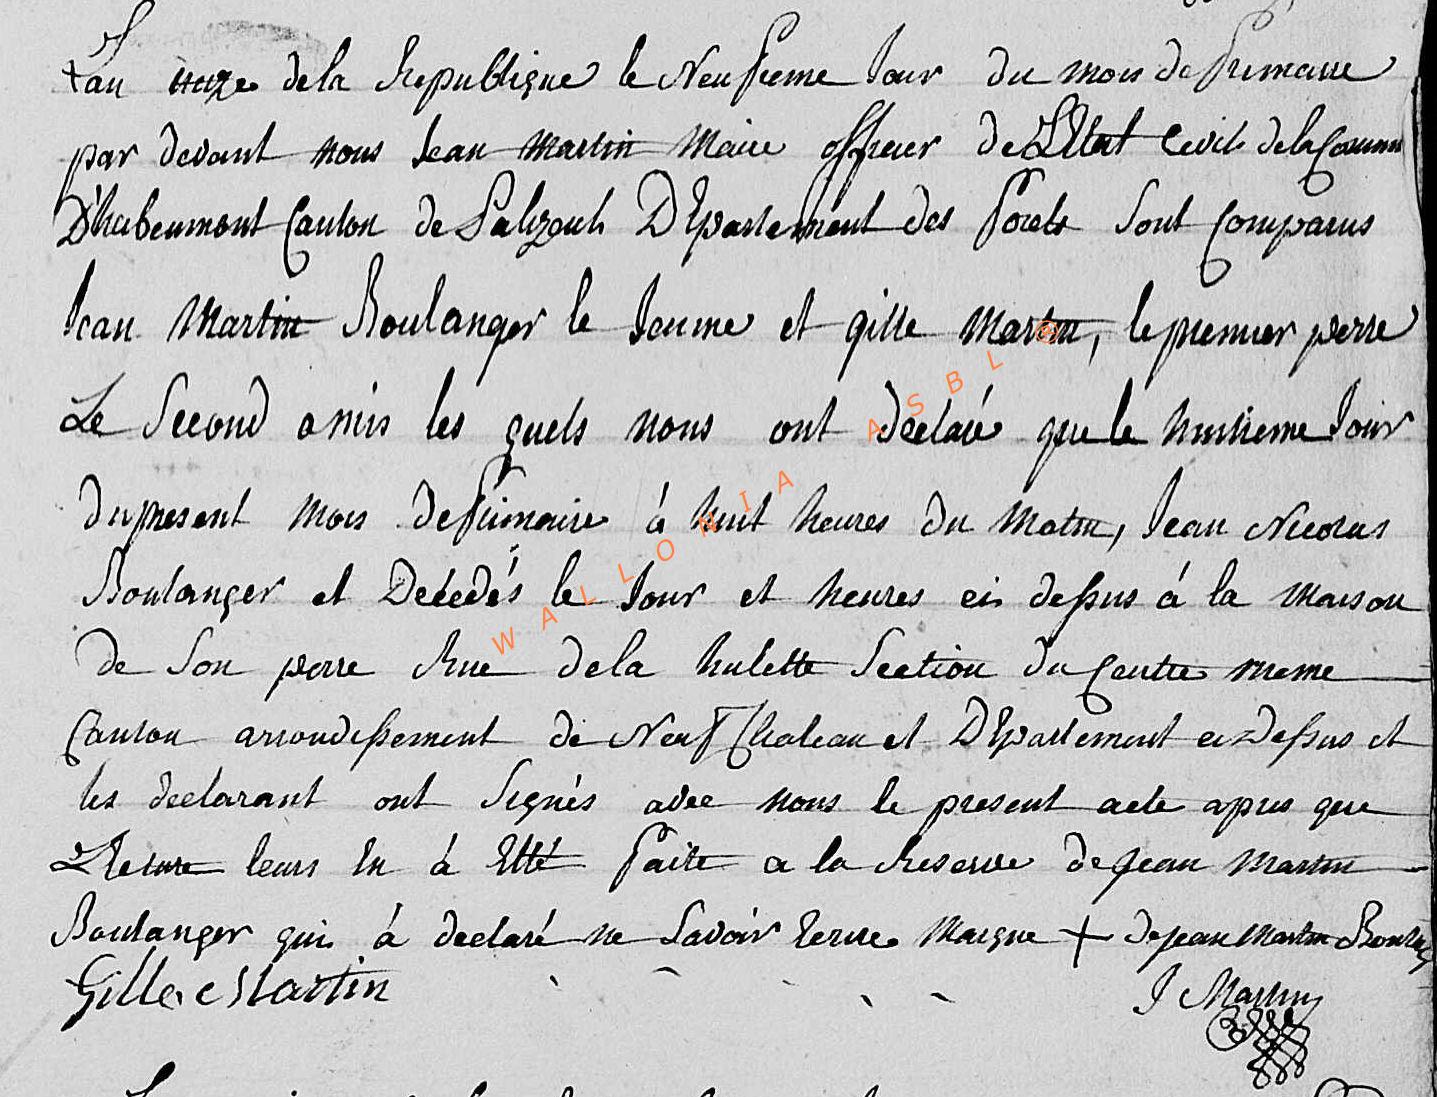 Lan onze dela Republique le Neufieme Jour du mois de frimaire
par devant nous Jean Martin Maire officier de LEtat Civils dela Commun
D'habeumont Canton de Sabzouls DEpartement des forets Sont Comparus
Jean Martin Boulanger le Jeunne et gille Martin, le premier perre
Le Second amis les quels nous ont déclaré que le huitieme Jour
du present mois de frimaire à huit heures du Matin, Jean Nicolas
Boulanger et Décédés le Jour et heures cis dessus á la maison
de Son perre Rue dela hulette Section du Centre meme
Canton arrondissement de Neuf Chateau et DEpartement ci Dessus et
les declarant ont Signés avec nous le present acte apres que
Lecture leurs En à Etté faite a la Reserve de Jean Martin
Boulanger qui à declaré ne Savoir Ecrire Marque + de jean Martin Boulan
Gille Martin J Martin
WALLONIA ASBL ®